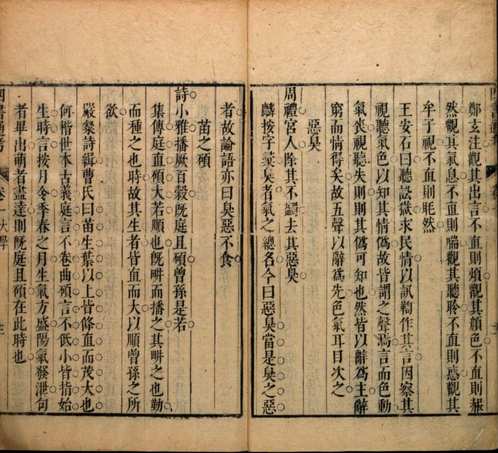 鄭玄注觀其出言不直則煩觀其顏色不直則赧
然觀其氣息不直則喘觀其聽聆不直則惑觀其
牟子視不直則眊然
王安石曰聽訟獄求民情以訊鞫作其言因察其
視聽氣色以知其情僞故皆謂之聲焉言而色動
氣喪視聽失則則其僞可知也然皆以辭爲主辭
窮而情得矣故五聲以辭爲先色氣耳目次之
惡臭
周禮宮人除其不蠲去其惡臭
麟按字彙臭者氣之總名今曰惡臭當是臭之惡
者故論語亦曰臭惡不食
苗之碩
詩小雅播厥百穀旣庭且碩曾孫是若
集傳庭直碩大若順也旣畊而播之其畊之也勤
而種之也時故其生者皆直而大以順曾孫之所
欲
嚴粲詩輯曹氏曰苗生葉以上皆條直而茂大也
何楷世本古義庭言不卷曲碩言不低小皆指始
生時言按月令季春之月生氣方盛陽氣發泄句
者畢出萌者盡達則旣庭且碩在此時也
卷一 大學